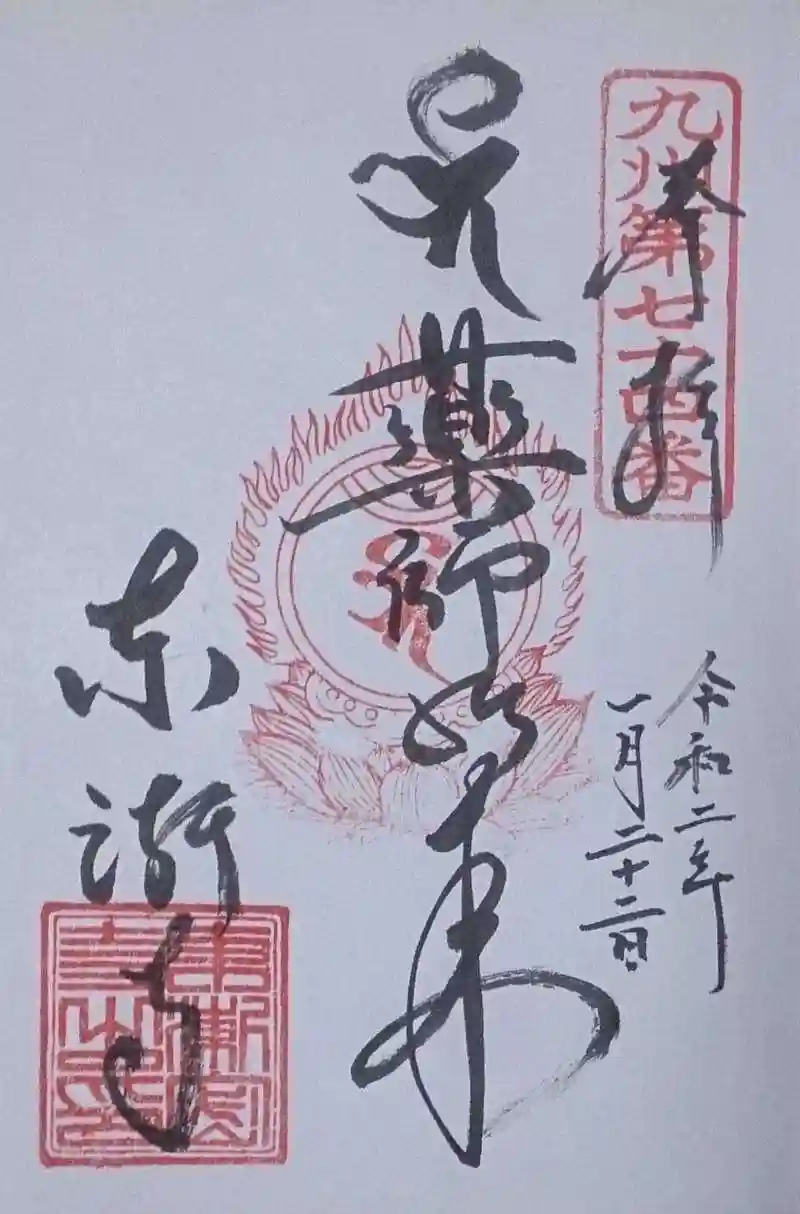 九州第七十四番
奉拝
令和二年
一月二十二日
薬師如来
東漸寺